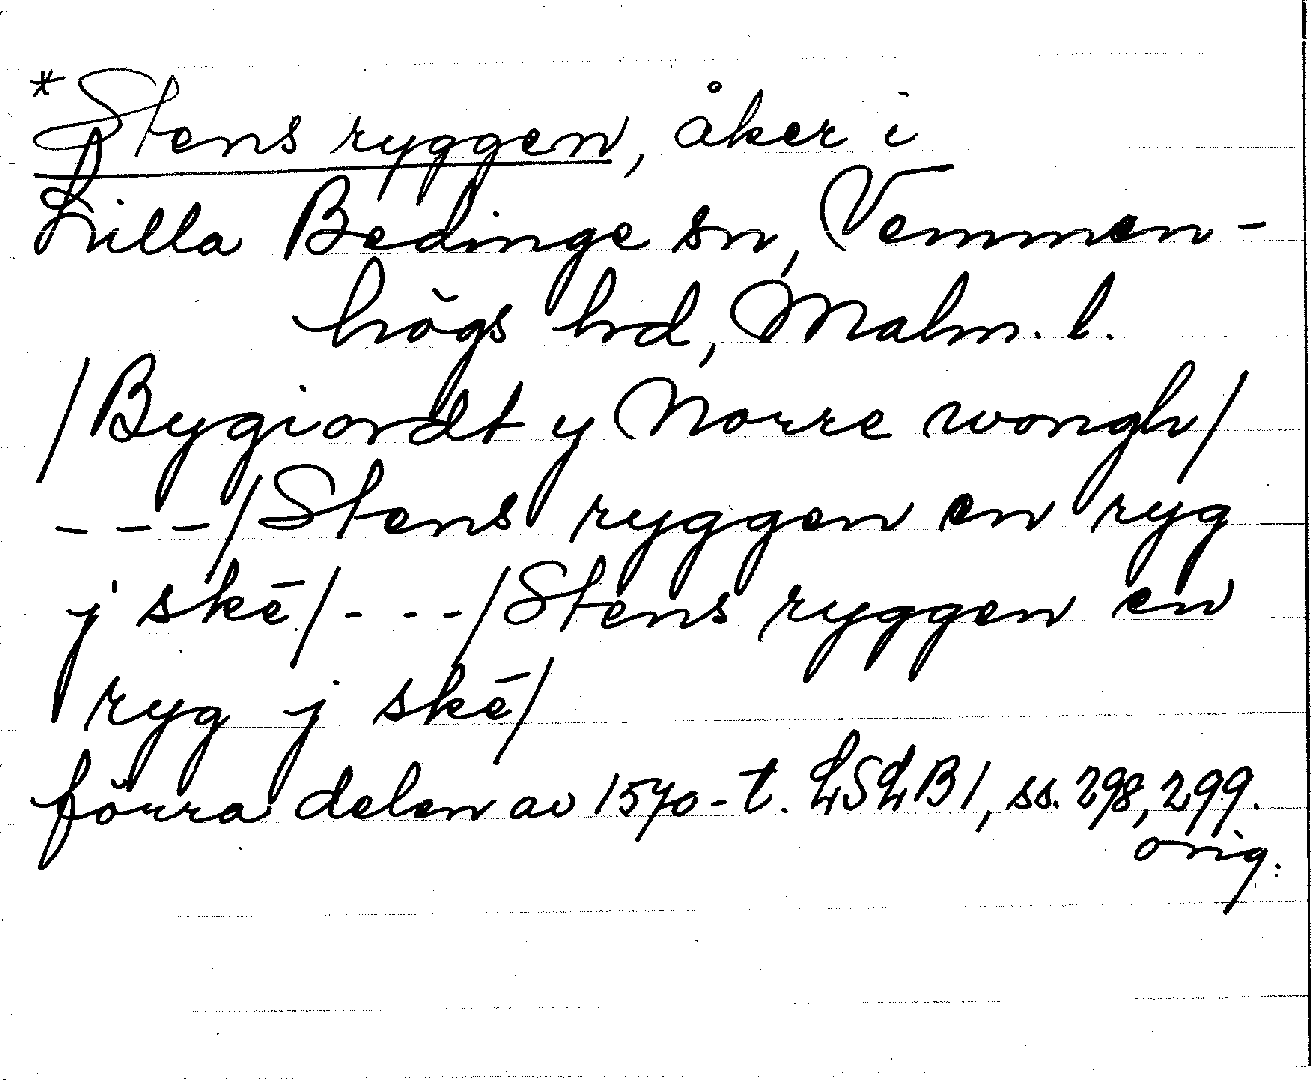 *Stens ryggen, åker i
Lilla Bedinge sn, Vemmen-
högs hd, Malm. l.
/Bygiordt y Norre wongh/
---/Stens ryggen en ryg
j skē/---/Stens ryggen en
ryg j skē/
förra delen av 1570-t. LSLB1, ss. 298, 299.
orig.